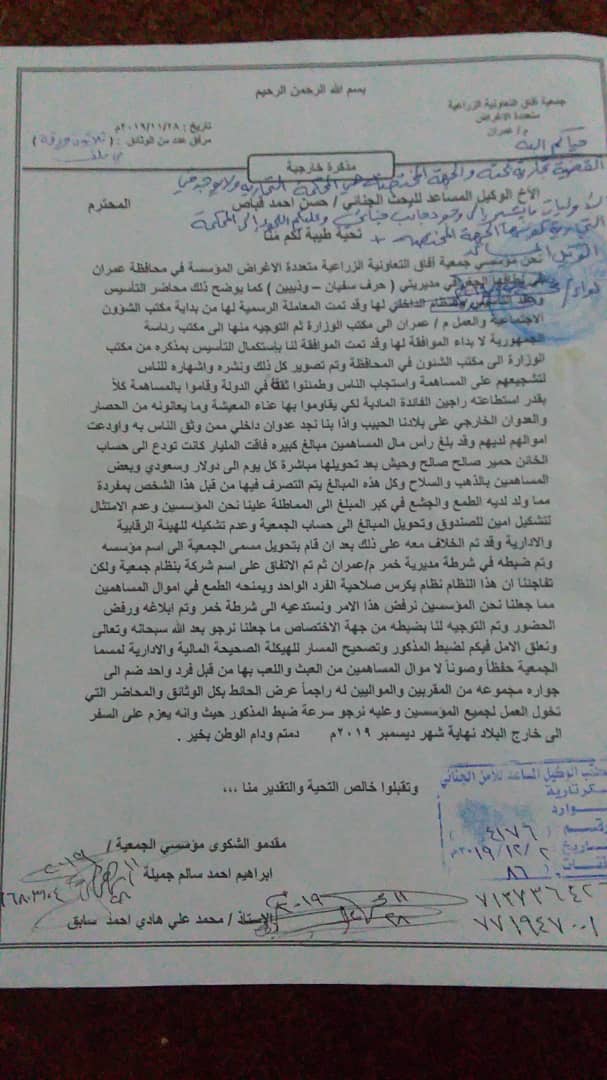 بسم الله الرحمن الرحيم
جمعية آفاق التعاونية الزراعية
متعددة الاغراض
م/ عمران
تاريخ : ٢٠١٩/١١/٢٨م
مرفق عدد من الوثائق : ( ثلاثون ورقة )
في ملف
حياكم الله
مذكرة خارجية
القضية تجارية بحته والجهة المختصة هي المحكمة التجارية
الأخ الوكيل المساعد للبحث الجنائي / حسن احمد قياص المحترم
تحية طيبة لكم منا
نحن مؤسسي جمعية آفاق التعاونية الزراعية متعددة الاغراض المؤسسة في محافظة عمران
الجغرافي مديريتي ( حرف سفيان – وذيبين ) كما يوضح ذلك محاضر التأسيس
وعقد التأسيس والنظام الداخلي لها وقد تمت المعاملة الرسمية لها من بداية مكتب الشؤون
الاجتماعية والعمل م / عمران الى مكتب الوزارة ثم التوجيه منها الى مكتب رناسة
الجمهورية لا بداء الموافقة لها وقد تمت الموافقة لنا بإستكمال التأسيس بمذكره من مكتب
الوزارة الى مكتب الشنون في المحافظة وتم تصوير كل ذلك ونشره واشهاره للناس
لتشجيعهم على المساهمة واستجاب الناس وطمئنوا ثقة في الدولة وقاموا بالمساهمة كلاً
بقدر استطاعته راجين الفائدة المادية لكي يقاوموا بها عناء المعيشة وما يعانونه من الحصار
والعدوان الخارجي على بلادنا الحبيب واذا بنا نجد عدوان داخلي ممن وثق الناس به واودعت
اموالهم لديهم وقد بلغ رأس مال المساهمين مبالغ كبيره فاقت المليار كانت تودع الى حساب
الخائن حمير صالح صالح وحيش بعد تحويلها مباشرة كل يوم الى دولار وسعودي وبعض
المساهمين بالذهب والسلاح وكل هذه المبالغ يتم التصرف فيها من قبل هذا الشخص بمفردة
مما ولد لديه الطمع والجشع في كبر المبلغ الى المماطلة علينا نحن المؤسسين وعدم الامتثال
لتشكيل امين للصندوق وتحويل المبالغ الى حساب الجمعية وعدم تشكيله للهيئة الرقابية
والادارية وقد تم الخلاف معه على ذلك بعد ان قام بتحويل مسمى الجمعية الى اسم مؤسسه
وتم ضبطه في شرطة مديرية خمر م/عمران ثم تم الاتفاق على اسم شركة بنظام جمعية ولكن
تفاجئنا ان هذا النظام نظام يكرس صلاحية الفرد الواحد ويمنحه الطمع في اموال المساهمين
مما جعلنا نحن المؤسسين نرفض هذا الامر ونستدعيه الى شرطة خمر وتم ابلاغه ورفض
الحضور وتم التوجيه لنا بضبطه من جهة الاختصاص ما جعلنا نرجو بعد الله سبحانه وتعالى
ونعلق الامل فيكم لضبط المذكور وتصحيح المسار للهيكلة الصحيحة المالية والادارية لمسما
الجمعية حفظاً وصوناً لا موال المساهمين من العبث واللعب بها من قبل فرد واحد ضم الى
جواره مجموعه من المقربين والمواليين له راجماً عرض الحائط بكل الوثائق والمحاضر التي
تخول العمل لجميع المؤسسين وعليه نرجو سرعة ضبط المذكور حيث وانه يعزم على السفر
الى خارج البلاد نهاية شهر ديسمبر ٢٠١٩م دمتم ودام الوطن بخير .
وتقبلوا خالص التحية والتقدير منا ،،،
مكتب الوكيل المساعد للامن الجنائي
سكرتارية
وارد
رقم ( ٤١٧٦ )
تاريخ ٢٠١٩/١٢/٢م
( ٨٦ )
مقدمو الشكوى مؤسسي الجمعية /
ابراهيم احمد سالم جميلة
٧١٢٧٣٦٤٢٦
٧٧١٩٤٧٠٠١
الاستاذ / محمد علي هادي احمد سابق